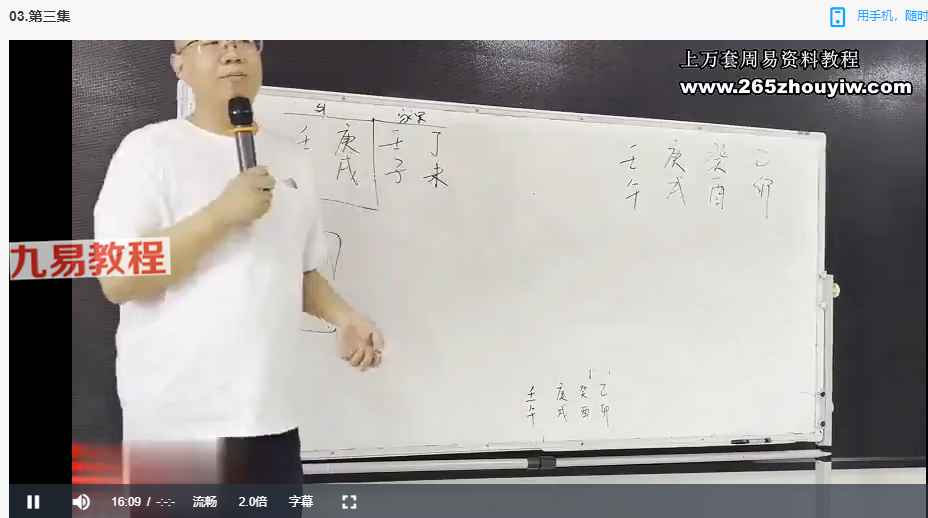 03.第三集
用手机，随时
上万套周易资料教程
www.265zhouyiw.com
家宅
壬 庚 壬 丁
戌 子 未
壬 庚 癸 乙
午 戌 酉 卯
九易教程
壬 庚 癸 乙
午 戌 酉 卯
16:09 / -:-:-
流畅
2.0倍
字幕